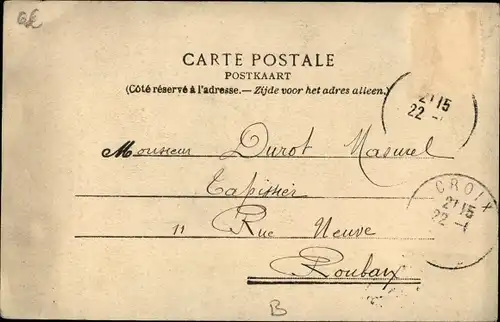 CARTE POSTALE
POSTKAART
(Côté réservé à l'adresse.— Zijde voor het adres alleen.)
21 15
22 -1
Monsieur Durot Masurel
CROIX
21 15
22 -1
Tapissier
11 Rue Neuve
Roubaix
B